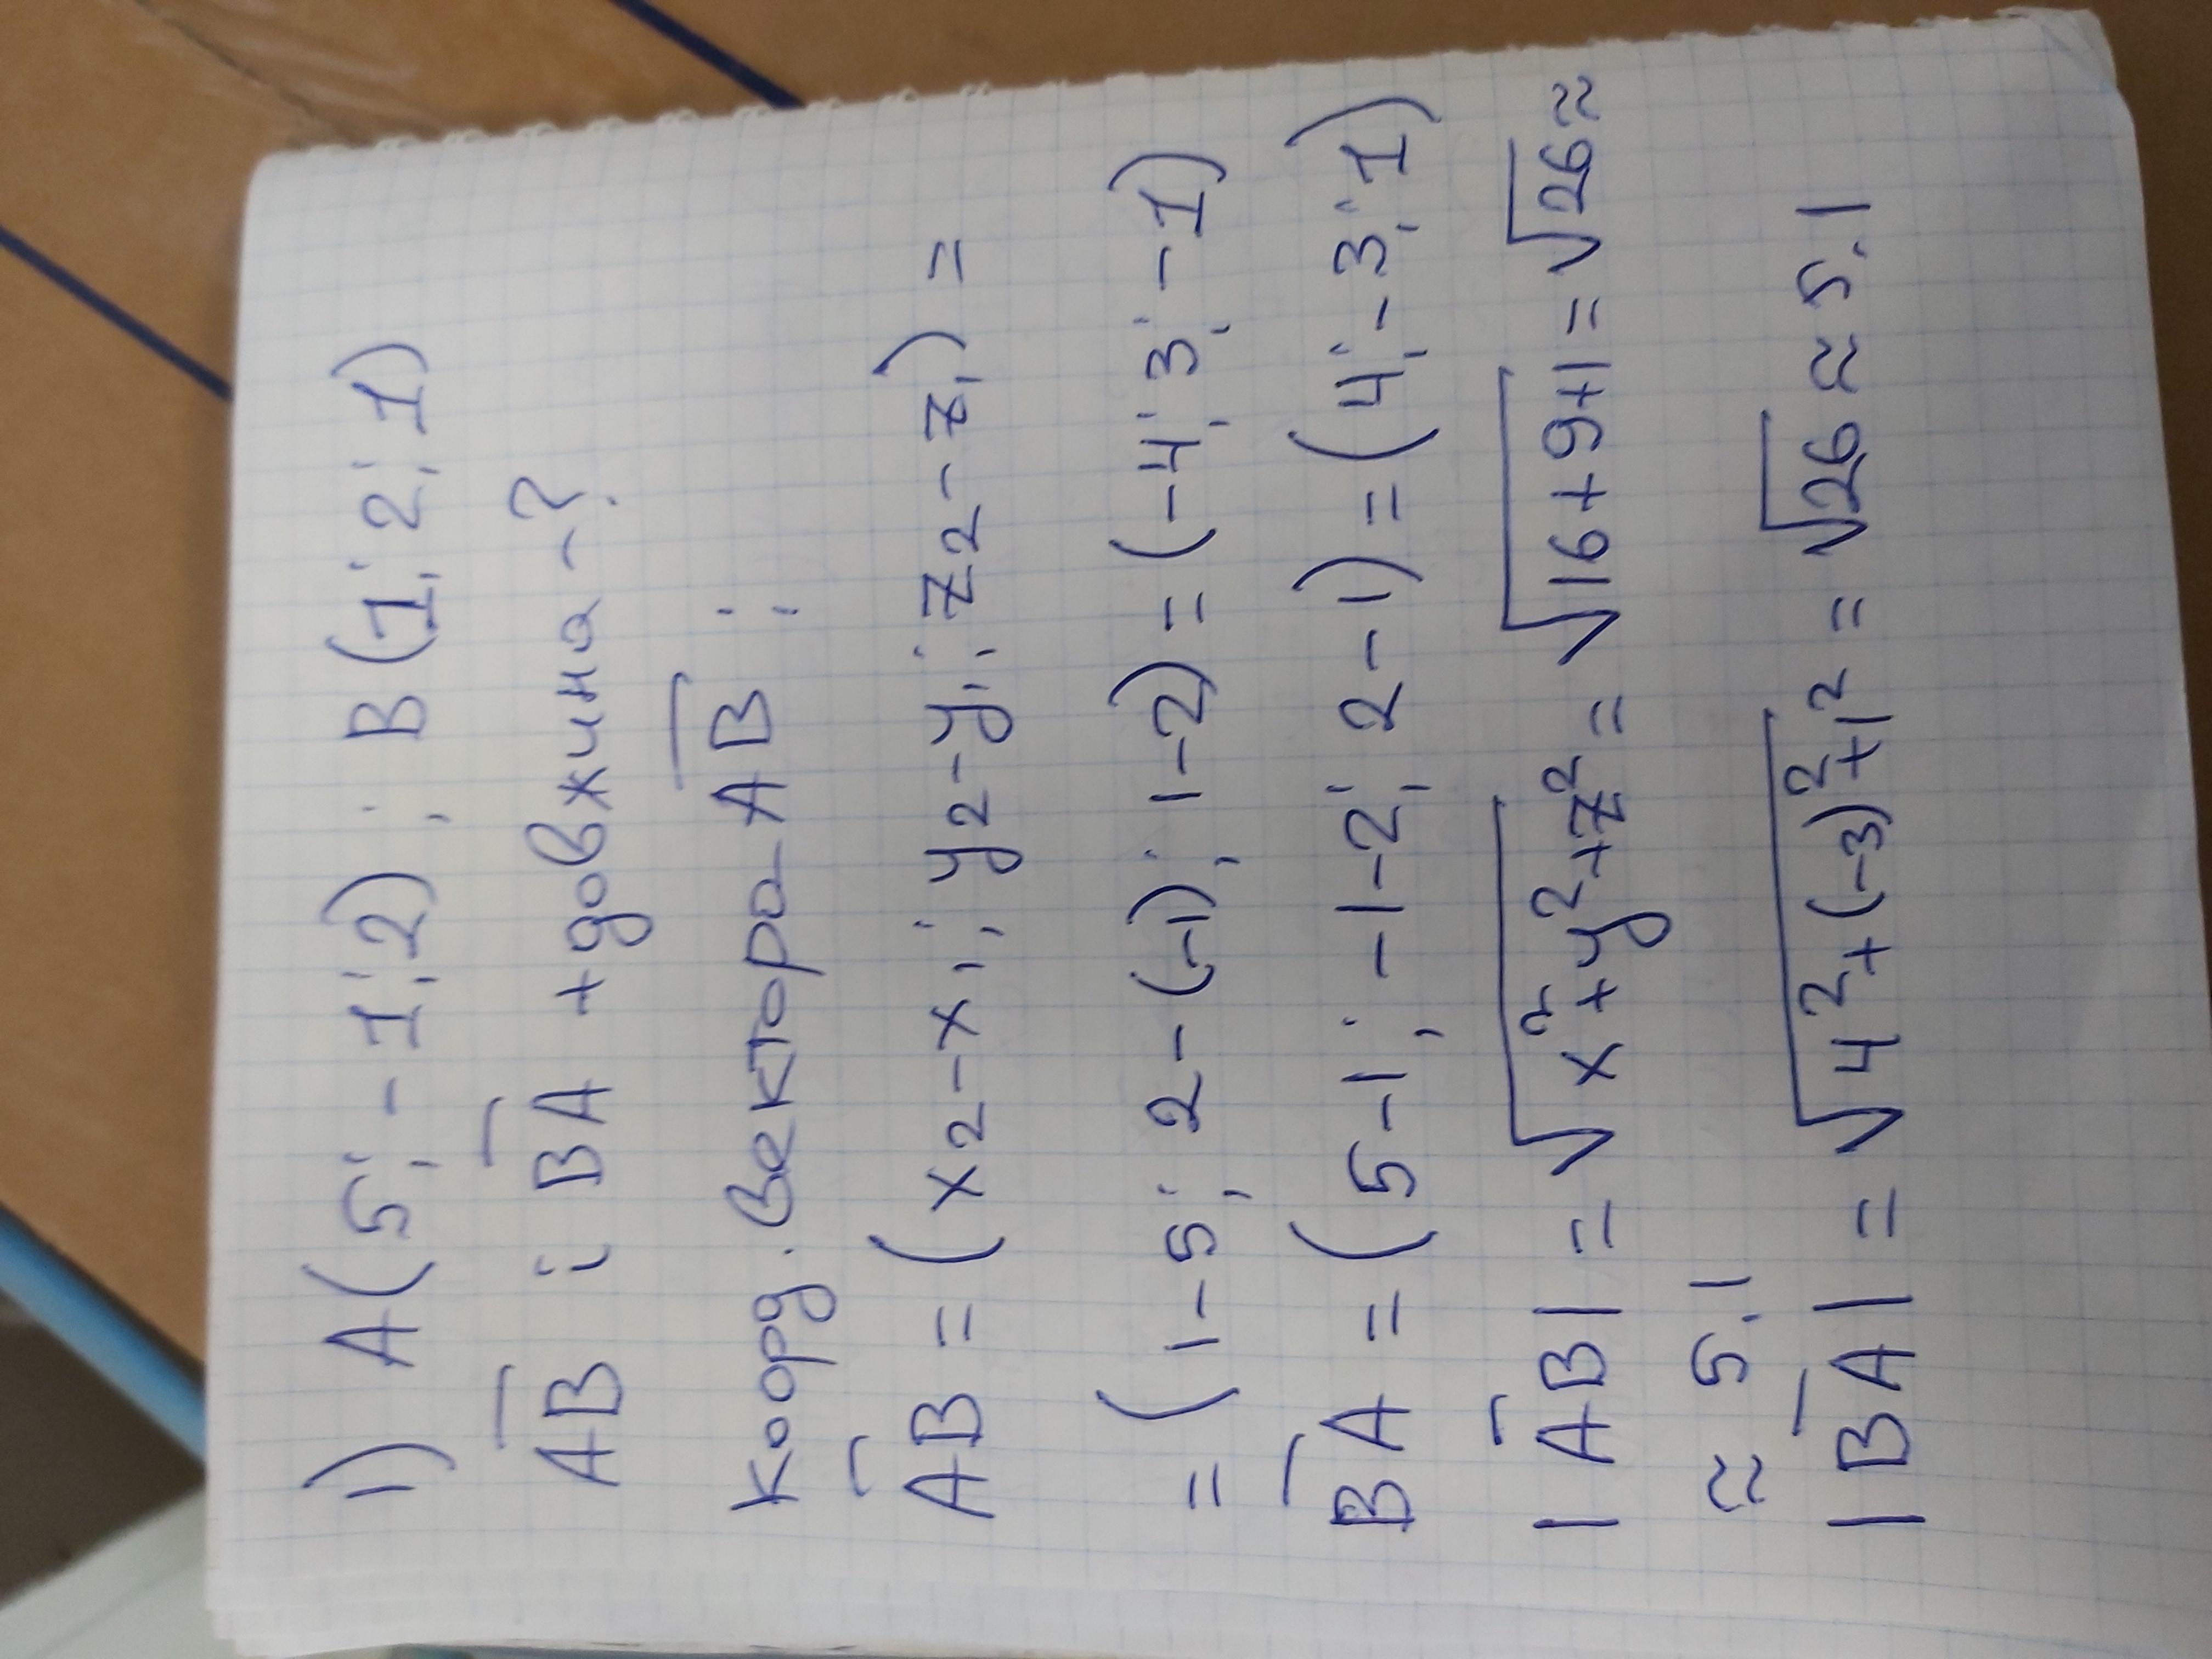 1) A(5; -1; 2) ; B(1; 2; 1)
A̅B̅ і B̅A̅ + довжина - ?
Коорд. вектора A̅B̅ :
A̅B̅ = (x₂ - x₁; y₂ - y₁; z₂ - z₁) =
= (1 - 5; 2 - (-1); 1 - 2) = (-4; 3; -1)
B̅A̅ = (5 - 1; -1 - 2; 2 - 1) = (4; -3; 1)
|A̅B̅| = √(x² + y² + z²) = √(16 + 9 + 1) = √26 ≈
≈ 5,1
|B̅A̅| = √(4² + (-3)² + 1²) = √26 ≈ 5,1